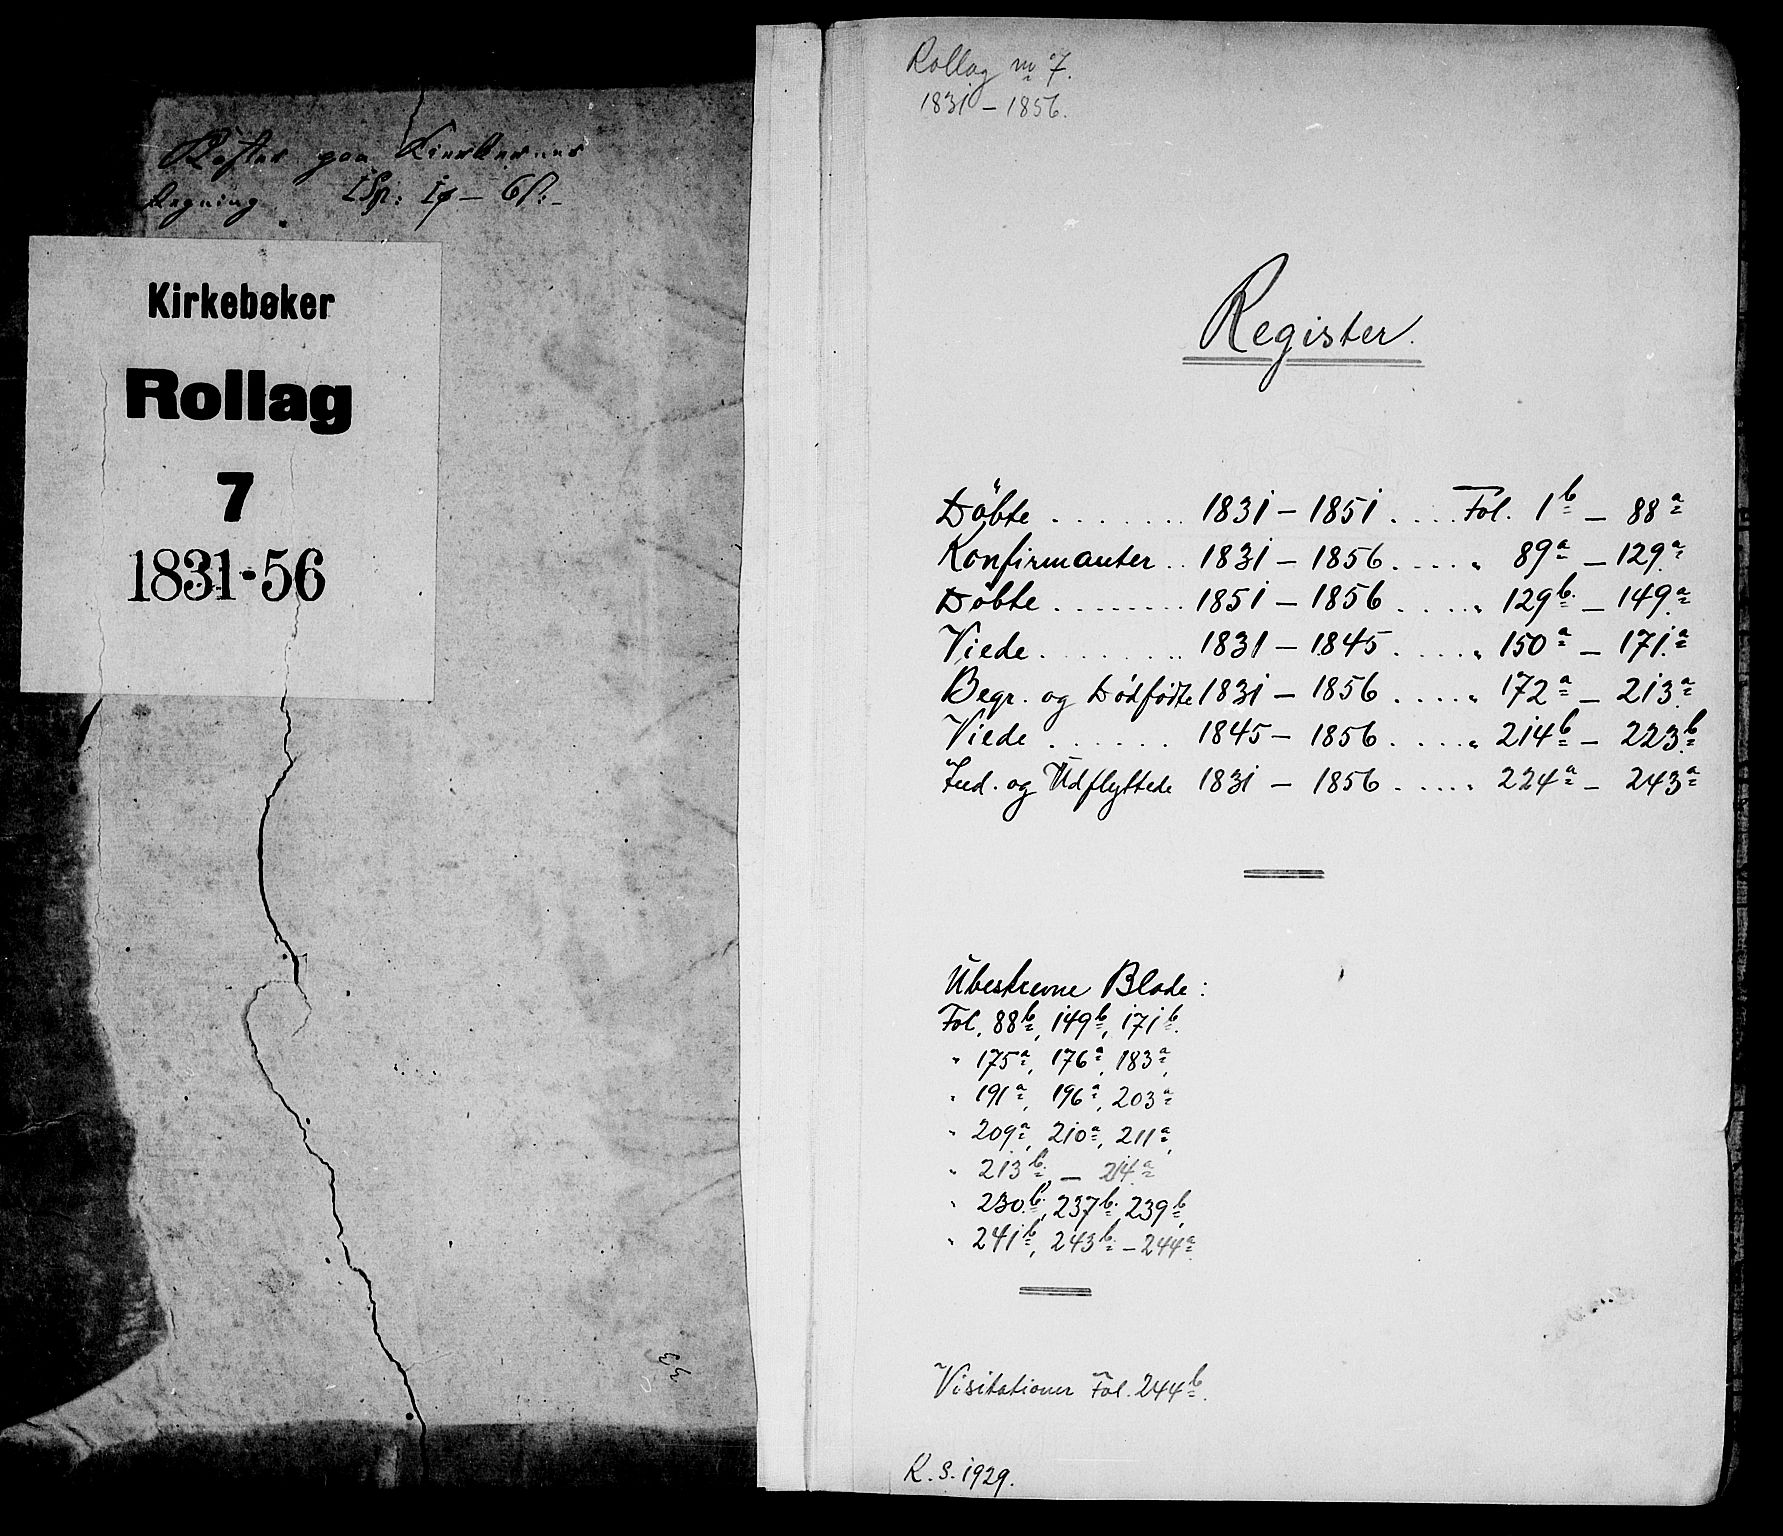 Koster paa Kierkernes
Regning 1 Sp: 1 ф — 6 ß:
Kirkebøker
Rollag
7
1831-56
Rollag nr 7.
1831 – 1856.
Register.
Döbte ........ 1831 – 1851 .... Fol. 1b – 88a
Konfirmanter .. 1831 – 1856 ..... " 89a – 129a
Döbte ........ 1851 – 1856 ..... " 129b – 149a
Viede ........ 1831 – 1845 ..... " 150a – 171a
Begr. og Dödfödte 1831 – 1856 ..... " 172a – 213a
Viede ...... 1845 – 1856 ..... " 214b – 223b
Ind. og Udflyttede 1831 – 1856 ..... " 224a – 243a
Ubeskrevne Blade:
Fol. 88b, 149b, 171b.
" 175a, 176a, 183a,
" 191a, 196a, 203a
" 209a, 210a, 211a,
" 213b – 214a
" 230b, 237b, 239b,
" 241b, 243b – 244a
Visitationer Fol. 244b.
R.S. 1929.